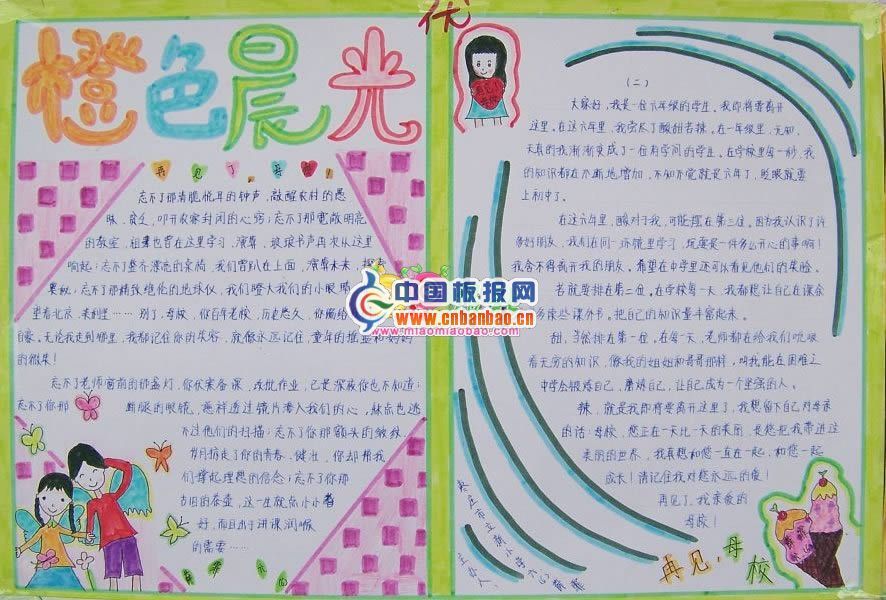 优
橙色晨光
再见了,母校!
忘不了那清脆悦耳的钟声,敲醒农村的愚
昧、贫乏,叩开农家封闭的心窍;忘不了那宽敞明亮
的教室,祖辈也曾在这里学习,演算,琅琅书声再次从这里
响起;忘不了整齐漂亮的桌椅,我们曾趴在上面,演算未来,探索
奥秘;忘不了那精致绝伦的地球仪,我们瞪大我们的小眼那
望着北京、来到里……别了,母校,你百年老校,历史悠久,你
自豪。无论我走到哪里,我都记住你的
的微笑!
忘不了老师窗前的那盏灯,你伏案备课,改批作业,已是深夜你也不知道;
忘不了你那 断腿的眼镜,总样透过镜片潜入我们的心,缺点也逃
不过他们的扫描;忘不了你那额头的皱纹,
岁月掠走了你的青春、健壮,你却帮我
们撑起理想的信念;忘不了你那
古旧的茶壶,这一生就点小小
好,而且出于讲课润喉
的需要……
中国板报网
www.cnbanbao.cn
www.miaomiaobao.com
(二)
大家好,我是一位六年级的学生。我即将要离开
这里。在这六年里,我尝尽了酸甜苦辣。在一年级里,无知、
天真的我渐渐变成了一位有学问的学生。在学校里每一秒,我
的知识都在不断地增加,不知不觉就是六年了,眨眼就要
上初中了。
在这六年里,酸对于我,可能摆在第三位。因为我认识了许
多好朋友,我们在同一环境里学习,玩耍是一件多么开心的事啊!
我舍不得离开我的朋友。希望在中学里还可以看见他们的笑脸。
苦就要排在第二位。在学校每一天,我都想让自己在课余
多读些课外书。把自己的知识要丰富起来。
甜,当然排在第一位。在每一天,老师都在给我们吮吸
着无穷的知识,像我的姐姐和哥哥那样,叫我能在困难之
中学会锻炼自己,磨练自己,让自己成为一个坚强的人。
辣,就是我即将要离开这里了,我想留下自己对母亲
的话:母校,您正在一天比一天的美丽,是您把我带进这
美丽的世界,我真想和您一直在一起,和您一起
成长!请记住我对您永远的爱!
再见了,我亲爱的
母校!
再见,母校